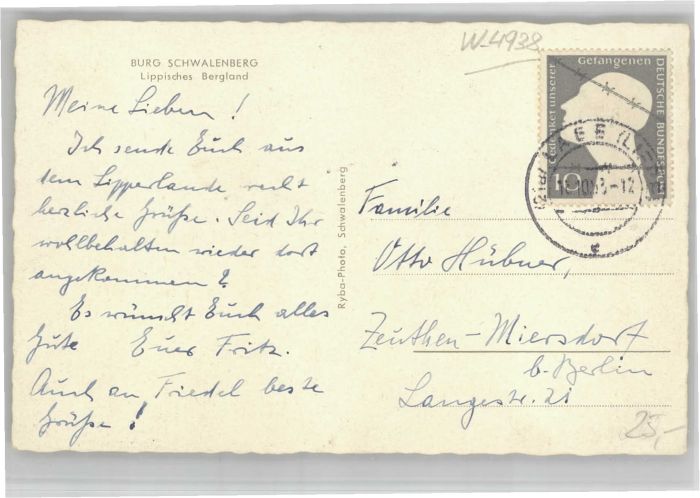 BURG SCHWALENBERG
Lippisches Bergland
Meine Lieben!
Ich sende Euch aus
dem Lipperlande recht
herzliche Grüße. Seid Ihr
wohlbehalten wieder dort
angekommen?
Es wünscht Euch alles
Gute Euer Fritz.
Auch an Friedel beste
Grüße!
Ryba-Photo, Schwalenberg
W-4938
Gedenket unserer Gefangenen
DEUTSCHE BUNDESPOST
10
Familie
Otto Hübner,
Zeuthen-Miersdorf
b. Berlin
Langestr. 21
25,-